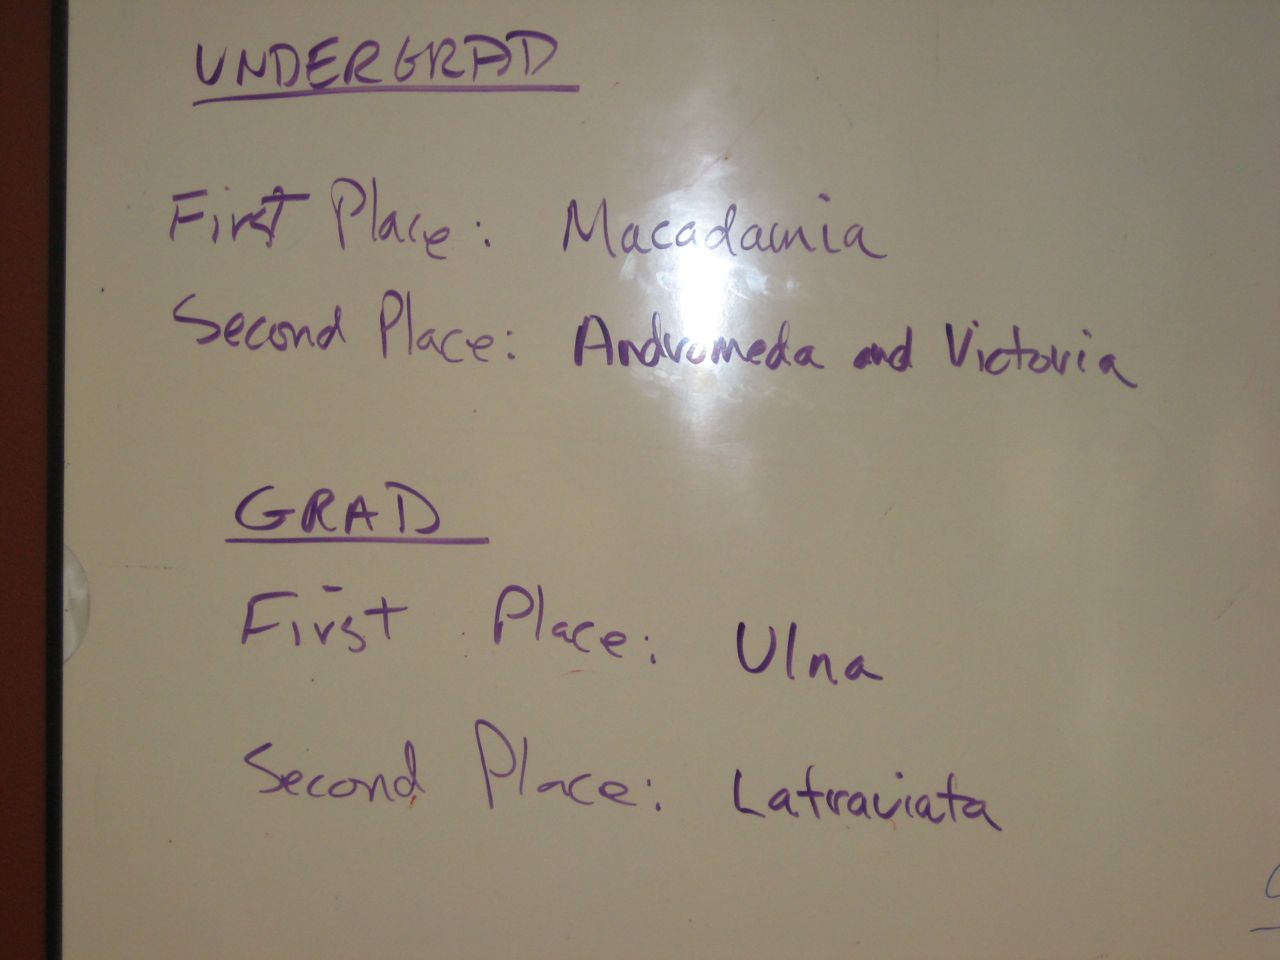 UNDERGRAD
First Place: Macadamia
Second Place: Andromeda and Victoria
GRAD
First Place: Ulna
Second Place: Latraviata